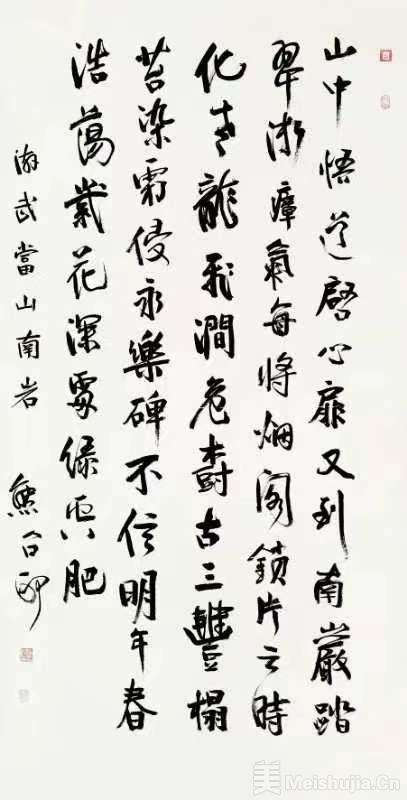 山中悟道啓心扉又到南巖踏
翠微瘴氣每將烟閣鎖片云時
化老龍飛澗危樹古三豐榻
苔染霜侵永樂碑不信明年春
浩蕩花深處綠肥
游武當山南岩 熊召政
美 Meishujia.Cn